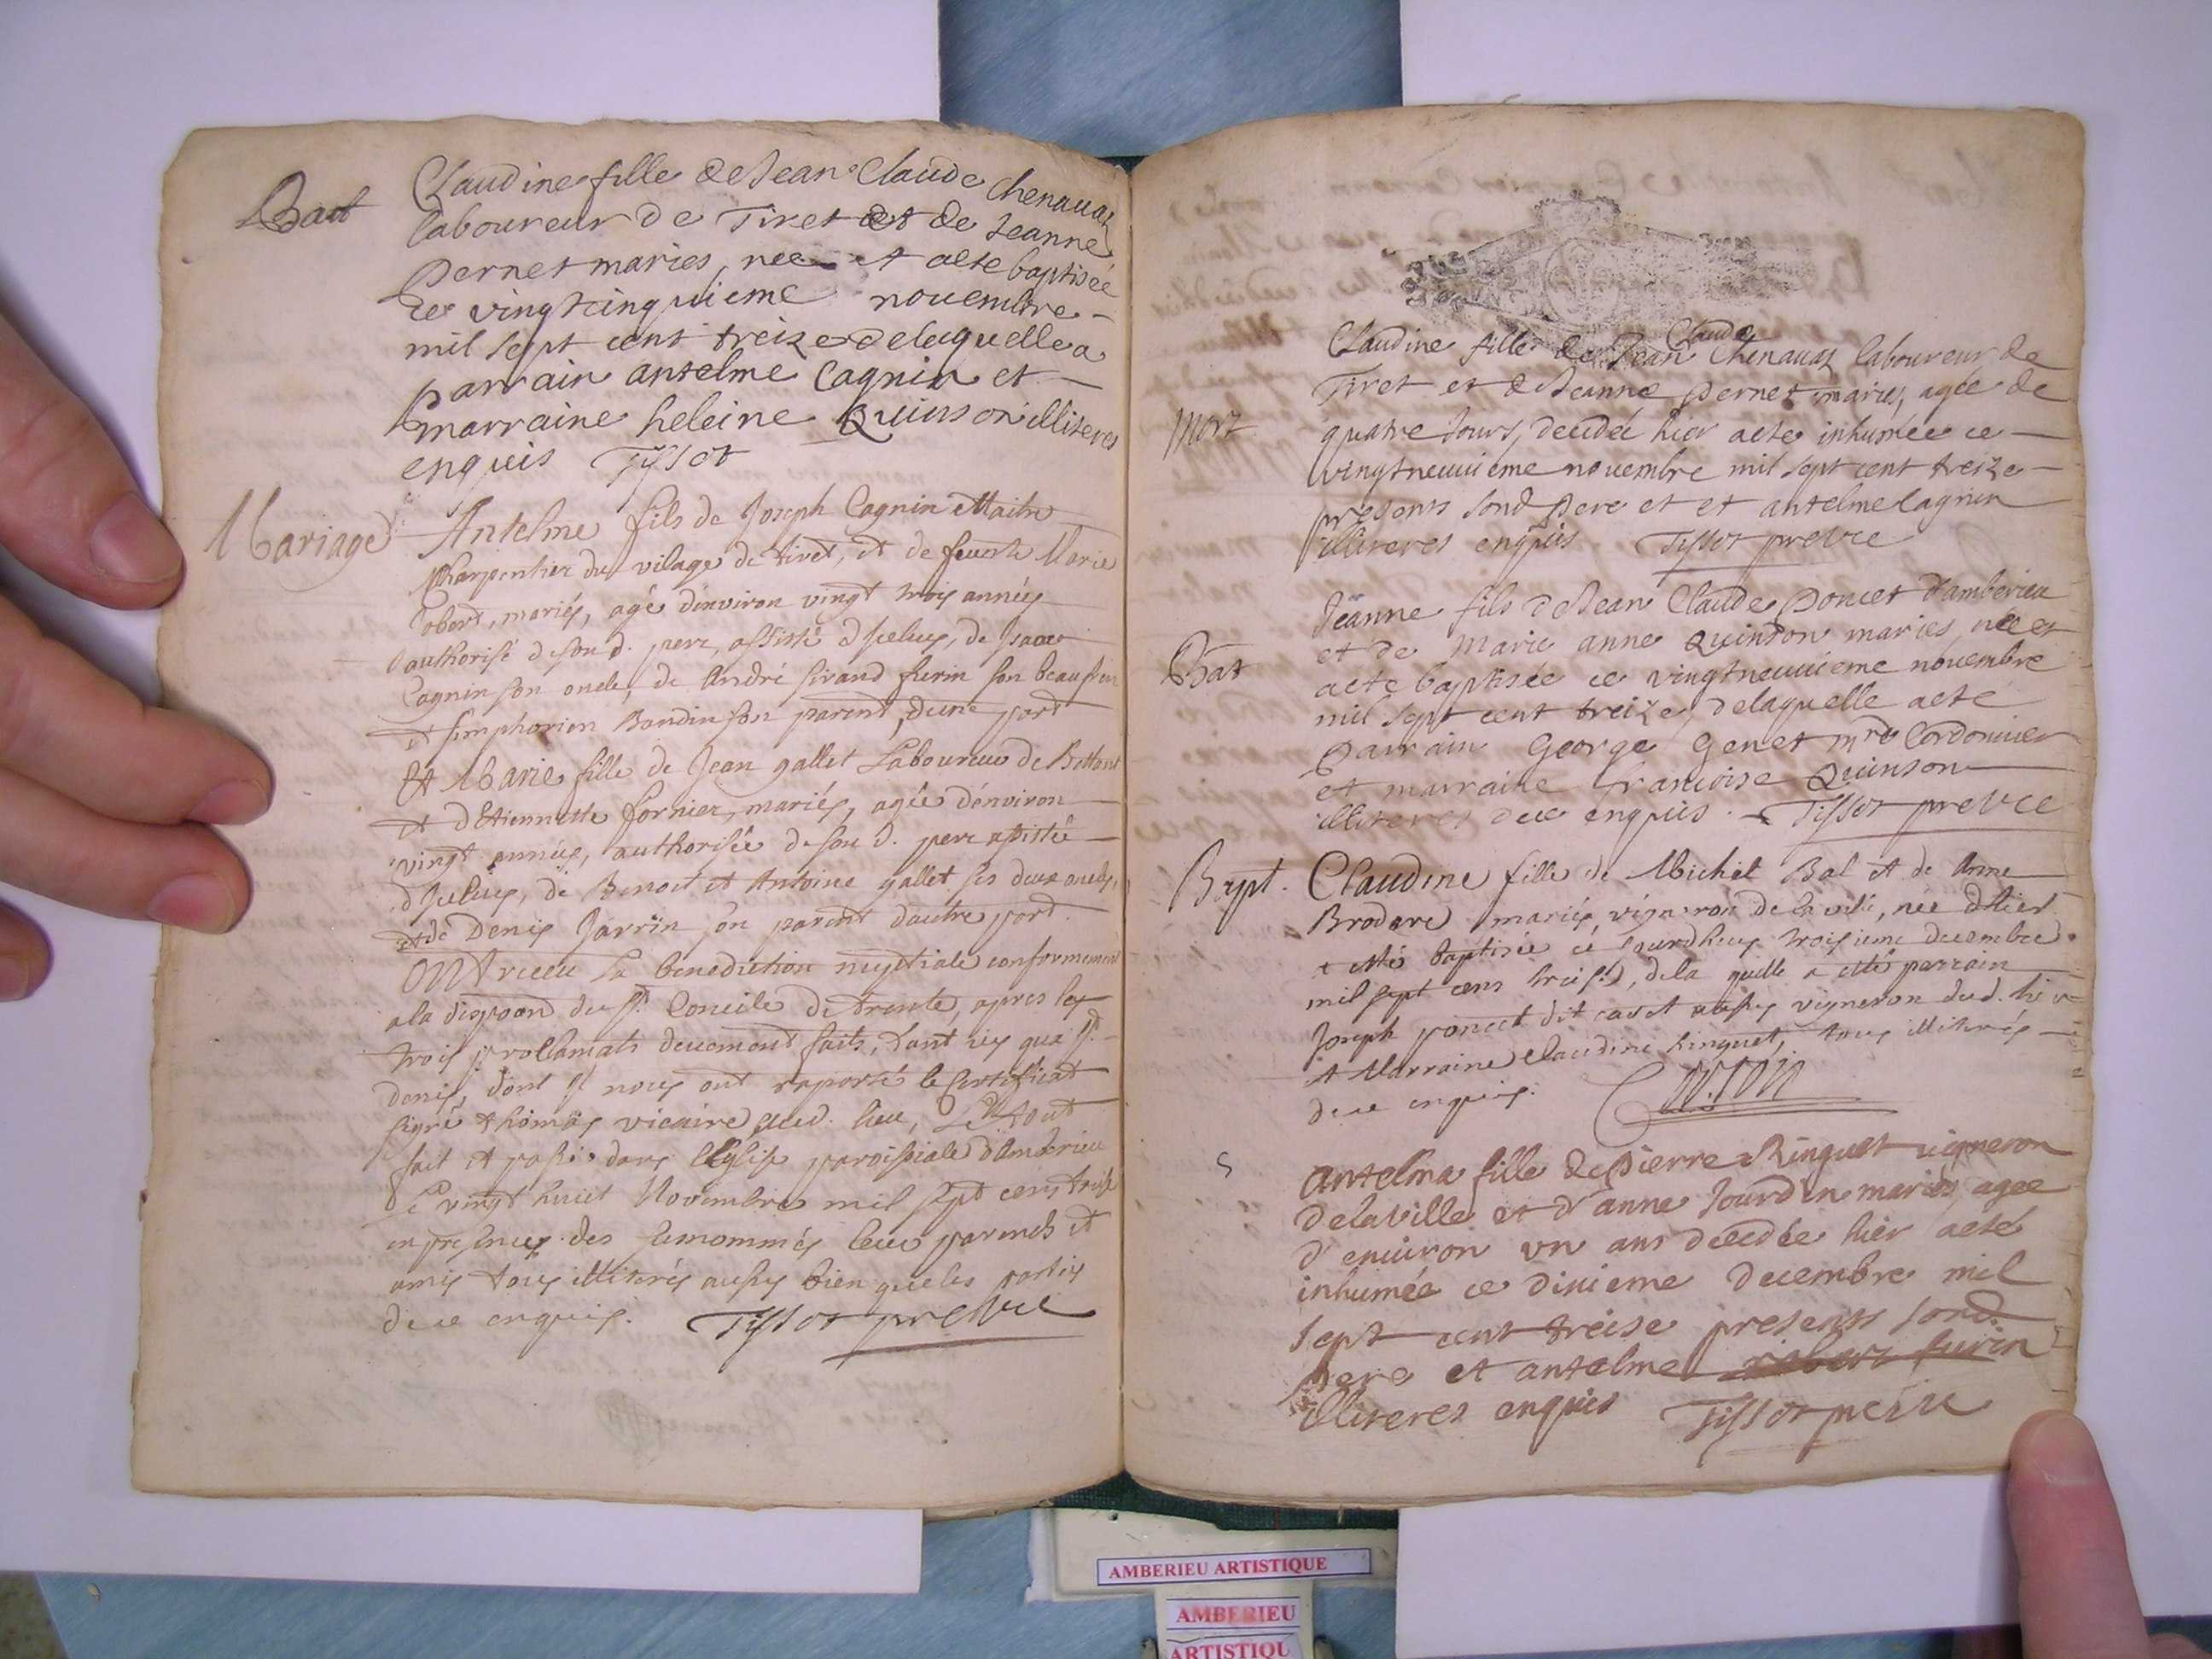 Bat
Claudine fille de Jean Claude Chenauaz
laboureur de Tiret et de Jeanne
Pernet maries, nee et aete baptisée
ce vingtcinquieme nouembre
mil sept cent treize delaquelle a
parrain antelme Cagnin et
marraine heleine Quinson illiteres
enquis Tissot
Mariage
Antelme fils de Joseph Cagnin Maitre
Charpentier du vilage de tiret, et de feue Marie
Cobert, mariés, agé d'environ vingt trois années
authorisé de son d. pere, assisté d'iceluy, de
Cagnin son oncle, de André Sirand furin son beaufrere
et simphorien Bondin son parent, d'une part
Et Marie fille de Jean gallet Laboureur de Bettant
et d'Etiennette fornier, mariés, agée d'environ
vingt années, authorisée de son d. pere assistée
d'Iceluy, de Benoit et Antoine gallet ses deux oncles,
et de Denis Jarrin son parent d'autre part.
ONt receu la benediction nuptiale conformement
a la dispoōn du St. Concile de trente, apres les
trois proclamats deuement faits, tant icy que St.
denis, dont Il nous ont raporté le Certificat
signé thomas vicaire dud. lieu, Le tout
fait et passé dans l'Eglise paroissiale d'Amberieu
le vingt huict Novembre mil sept cens treise
en presences des susnommés leurs parents et
amis tous illiterés aussy bien que les parties
de ce enquis. Tissot prebvre
Mort
Claude
Claudine fille de Jean Chenauaz laboureur de
Tiret et de Jeanne Pernet maries, agée de
quatre Jours, decedée hier aeté inhumée ce
vingtneuuieme nouembre mil sept cent treize
presents sond pere et et antelme Cagnin
illiteres enquis Tissot prebvre
Bat
Jeanne fils de Jean Claude Poncet d'amberieu
et de Marie anne Quinson maries née et
aeté baptisée ce vingtneuuieme nouembre
mil sept cent treize, delaquelle aeté
Parrain George Genet mre Cordonnier
et marraine francoise Quinson
illiteres dece enquis. Tissot prebvre
Bapt.
Claudine fille de Michel Bal et de Anne
Brodare mariés, vigneron de la ville, née d'hier
a esté baptisée ce jourdhuy troisieme decembre
mil sept cens treise, de la quelle a esté parrain
Joseph poncet dit cadet aussy vigneron dud. lieu
et Marraine Claudine Ringuet, tous illiterés
de ce enquis.
S
Antelma fille de Pierre Ringuet uigneron
delaville et d'anne Jourdin maries, agee
d'enuiron un ans decedée hier aeté
inhumée ce dixieme decembre mil
sept cent treise presents sond
pere et antelme robert furin
illiteres enquis Tissot prebvre
AMBERIEU ARTISTIQUE
AMBERIEU
ARTISTIQU